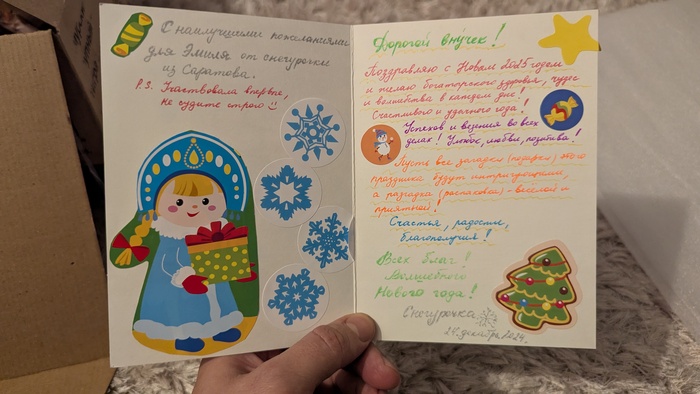 С наилучшими пожеланиями
для Эмиля от снегурочки
из Саратова.
P.S. Участвовала впервые,
не судите строго
Дорогой внучек!
Поздравляю с Новым 2025 годом
и желаю богатырского здоровья, чудес
и волшебства в каждом дне!
Счастливого и удачного года!
Успехов и везения во всех
делах! Улыбок, любви, позитива!
Пусть все загадки (подарки) этого
праздника будут интригующими,
а разгадка (распаковка) - весёлой и
приятной!
Счастья, радости,
благополучия!
Всех благ!
Волшебного
Нового года!
Снегурочка
24 декабря 2024г.